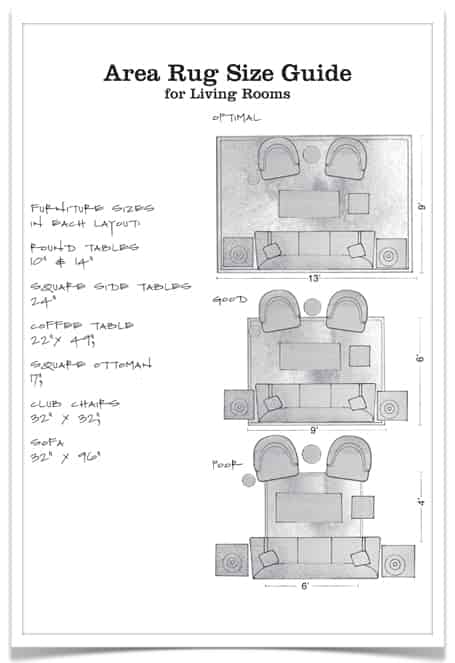 Area Rug Size Guide
for Living Rooms
OPTIMAL
9'
13'
FURNITURE SIZES
IN EACH LAYOUT:
ROUND TABLES
10" & 14"
SQUARE SIDE TABLES
24"
COFFEE TABLE
22" X 49"
SQUARE OTTOMAN
17"
CLUB CHAIRS
32" X 32"
SOFA
32" X 96"
GOOD
6'
9'
POOR
4'
6'